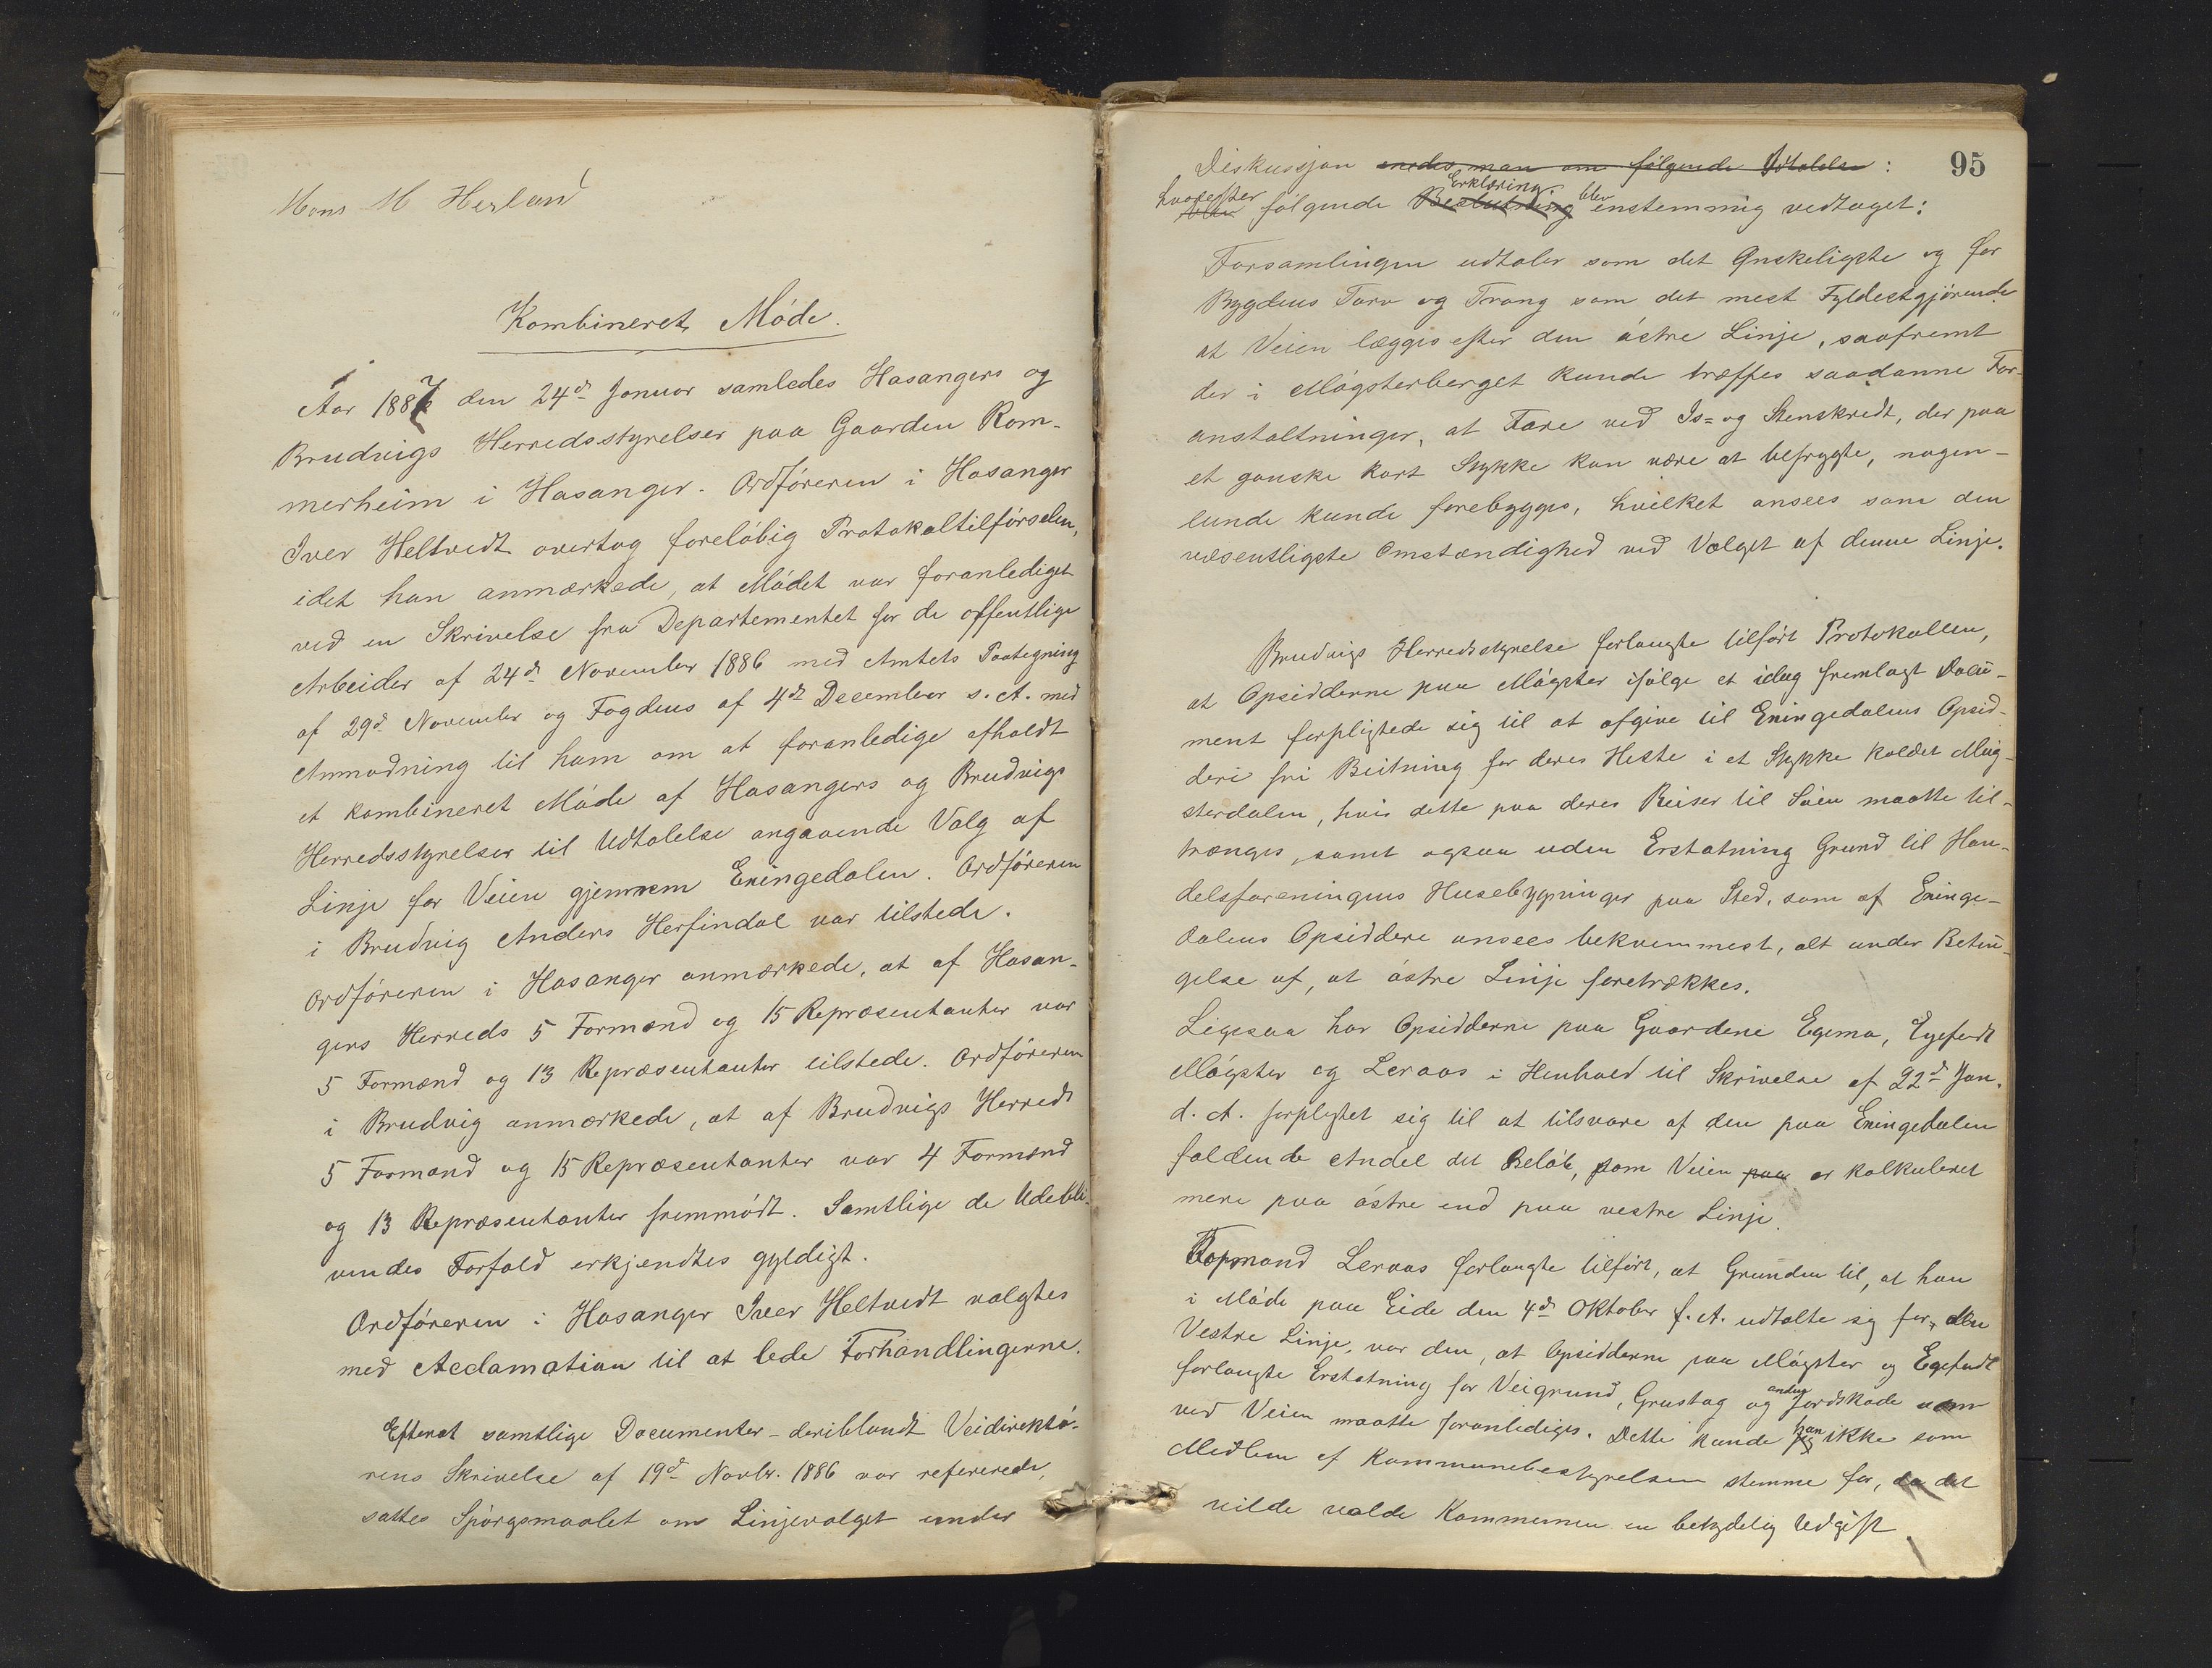 Mons M Herland
Kombineret Møde.
Aar 1887 den 24de Januar samledes Hosangers og
Brudvigs Herredsstyrelser paa Gaarden Rom-
merheim i Hosanger. Ordføreren i Hosanger
Iver Heltvedt overtog foreløbig Protokoltilførselen,
idet han anmærkede, at Mødet var foranlediget
ved en Skrivelse fra Departementet for de offentlige
Arbeider af 24de November 1886 med Amtets Paategning
af 29de November og Fogdens af 4de December s. A. med
Anmodning til ham om at foranledige afholdt
et kombineret Møde af Hosangers og Brudvigs
Herredsstyrelser til Udtalelse angaaende Valg af
Linje for Veien gjennem Exingedalen. Ordføreren
i Brudvig Anders Herfindal var tilstede.
Ordføreren i Hosanger anmærkede, at af Hosan-
gers Herreds 5 Formænd og 15 Repræsentanter var
5 Formænd og 13 Repræsentanter tilstede. Ordføreren
i Brudvig anmærkede, at af Brudvigs Herreds
5 Formænd og 15 Repræsentanter var 4 Formænd
og 13 Repræsentanter fremmødt. Samtlige de Udebli-
vendes Forfald erkjendtes gyldigt.
Ordføreren i Hosanger Iver Heltvedt valgtes
med Acclamation til at lede Forhandlingerne.
Efterat samtlige Documenter - deriblandt Veidirektø-
rens Skrivelse af 19de Novbr. 1886 var refererede,
sattes Spørgsmaalet om Linjevalget under
95
Diskussjon enedes man om følgende Udtalelse :
hvorefter følgende Beslutning Erklæring blev enstemmig vedtaget:
Forsamlingen udtaler som det Ønskeligste og for
Bygdens Tarv og Trang som det mest Fyldestgjørende
at Veien lægges efter den østre Linje, saafremt
der i Møgsterberget kunde træffes saadanne For-
anstaltninger, at Fare ved Is- og Stenskredt, der paa
et ganske kort Stykke kan være at befrygte, nogen-
lunde kunde forebygges, hvilket ansees som den
væsentligste Omstændighed ved Valget af denne Linje.
Brudvigs Herredsstyrelse forlangte tilført Protokollen,
at Opsidderne paa Møgster ifølge et idag fremlagt Docu-
ment forpligtede sig til at afgive til Exingedalens Opsid-
dere fri Beitning for deres Heste i et Stykke kaldet Møg-
sterdalen, hvis dette paa deres Reiser til Søen maatte til-
trænges, samt ogsaa uden Erstatning Grund til Han-
delsforeningens Husebygninger paa Sted, som af Exinge-
dalens Opsiddere ansees bekvemmest, alt under Betin-
gelse af, at østre Linje foretrækkes.
Ligesaa har Opsidderne paa Gaardene Egemo, Egefedt
Møgster og Leraas i Henhold til Skrivelse af 22de Jan.
d. A. forpligtet sig til at tilsvare af den paa Exingedalen
faldende Andel det Beløb, som Veien paa er kalkuleret
mere paa østre end paa vestre Linje.
Formand Leraas forlangte tilført, at Grunden til, at han
i Møde paa Eide den 4de Oktober f. A. udtalte sig for den
Vestre Linje, var den, at Opsidderne paa Møgster og Egefedt
forlangte Erstatning for Veigrund, Grustag og anden Jordskade som
ved Veien maatte foranlediges. Dette kunde jeg han ikke som
Medlem af Kommunebestyrelsen stemme for, da det
vilde volde Kommunen en betydelig Udgift